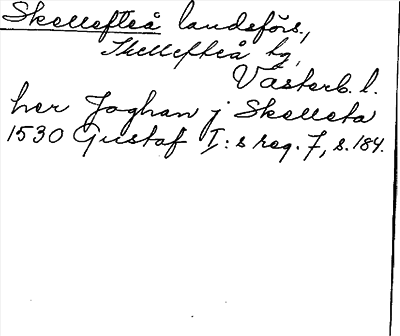 Skellefteå landsförs.,
Skellefteå by,
Västerb. l.
her Joghan j Skelleta
1530 Gustaf I:s reg. 7, s. 184.